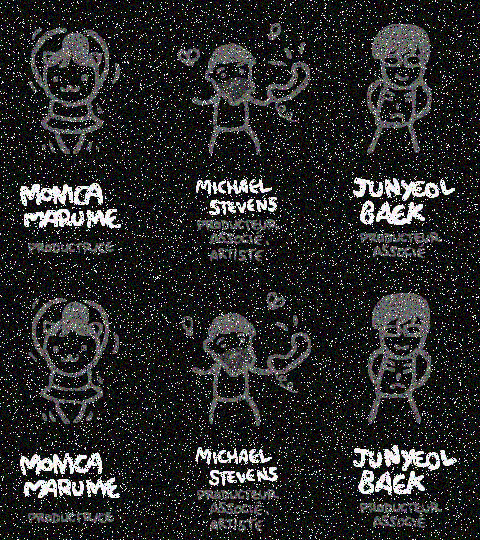 MONICA
MARUME
PRODUCTRICE
MICHAEL
STEVENS
PRODUCTEUR
ASSOCIÉ,
ARTISTE
JUNYEOL
BAEK
PRODUCTEUR
ASSOCIÉ
MONICA
MARUME
PRODUCTRICE
MICHAEL
STEVENS
PRODUCTEUR
ASSOCIÉ,
ARTISTE
JUNYEOL
BAEK
PRODUCTEUR
ASSOCIÉ